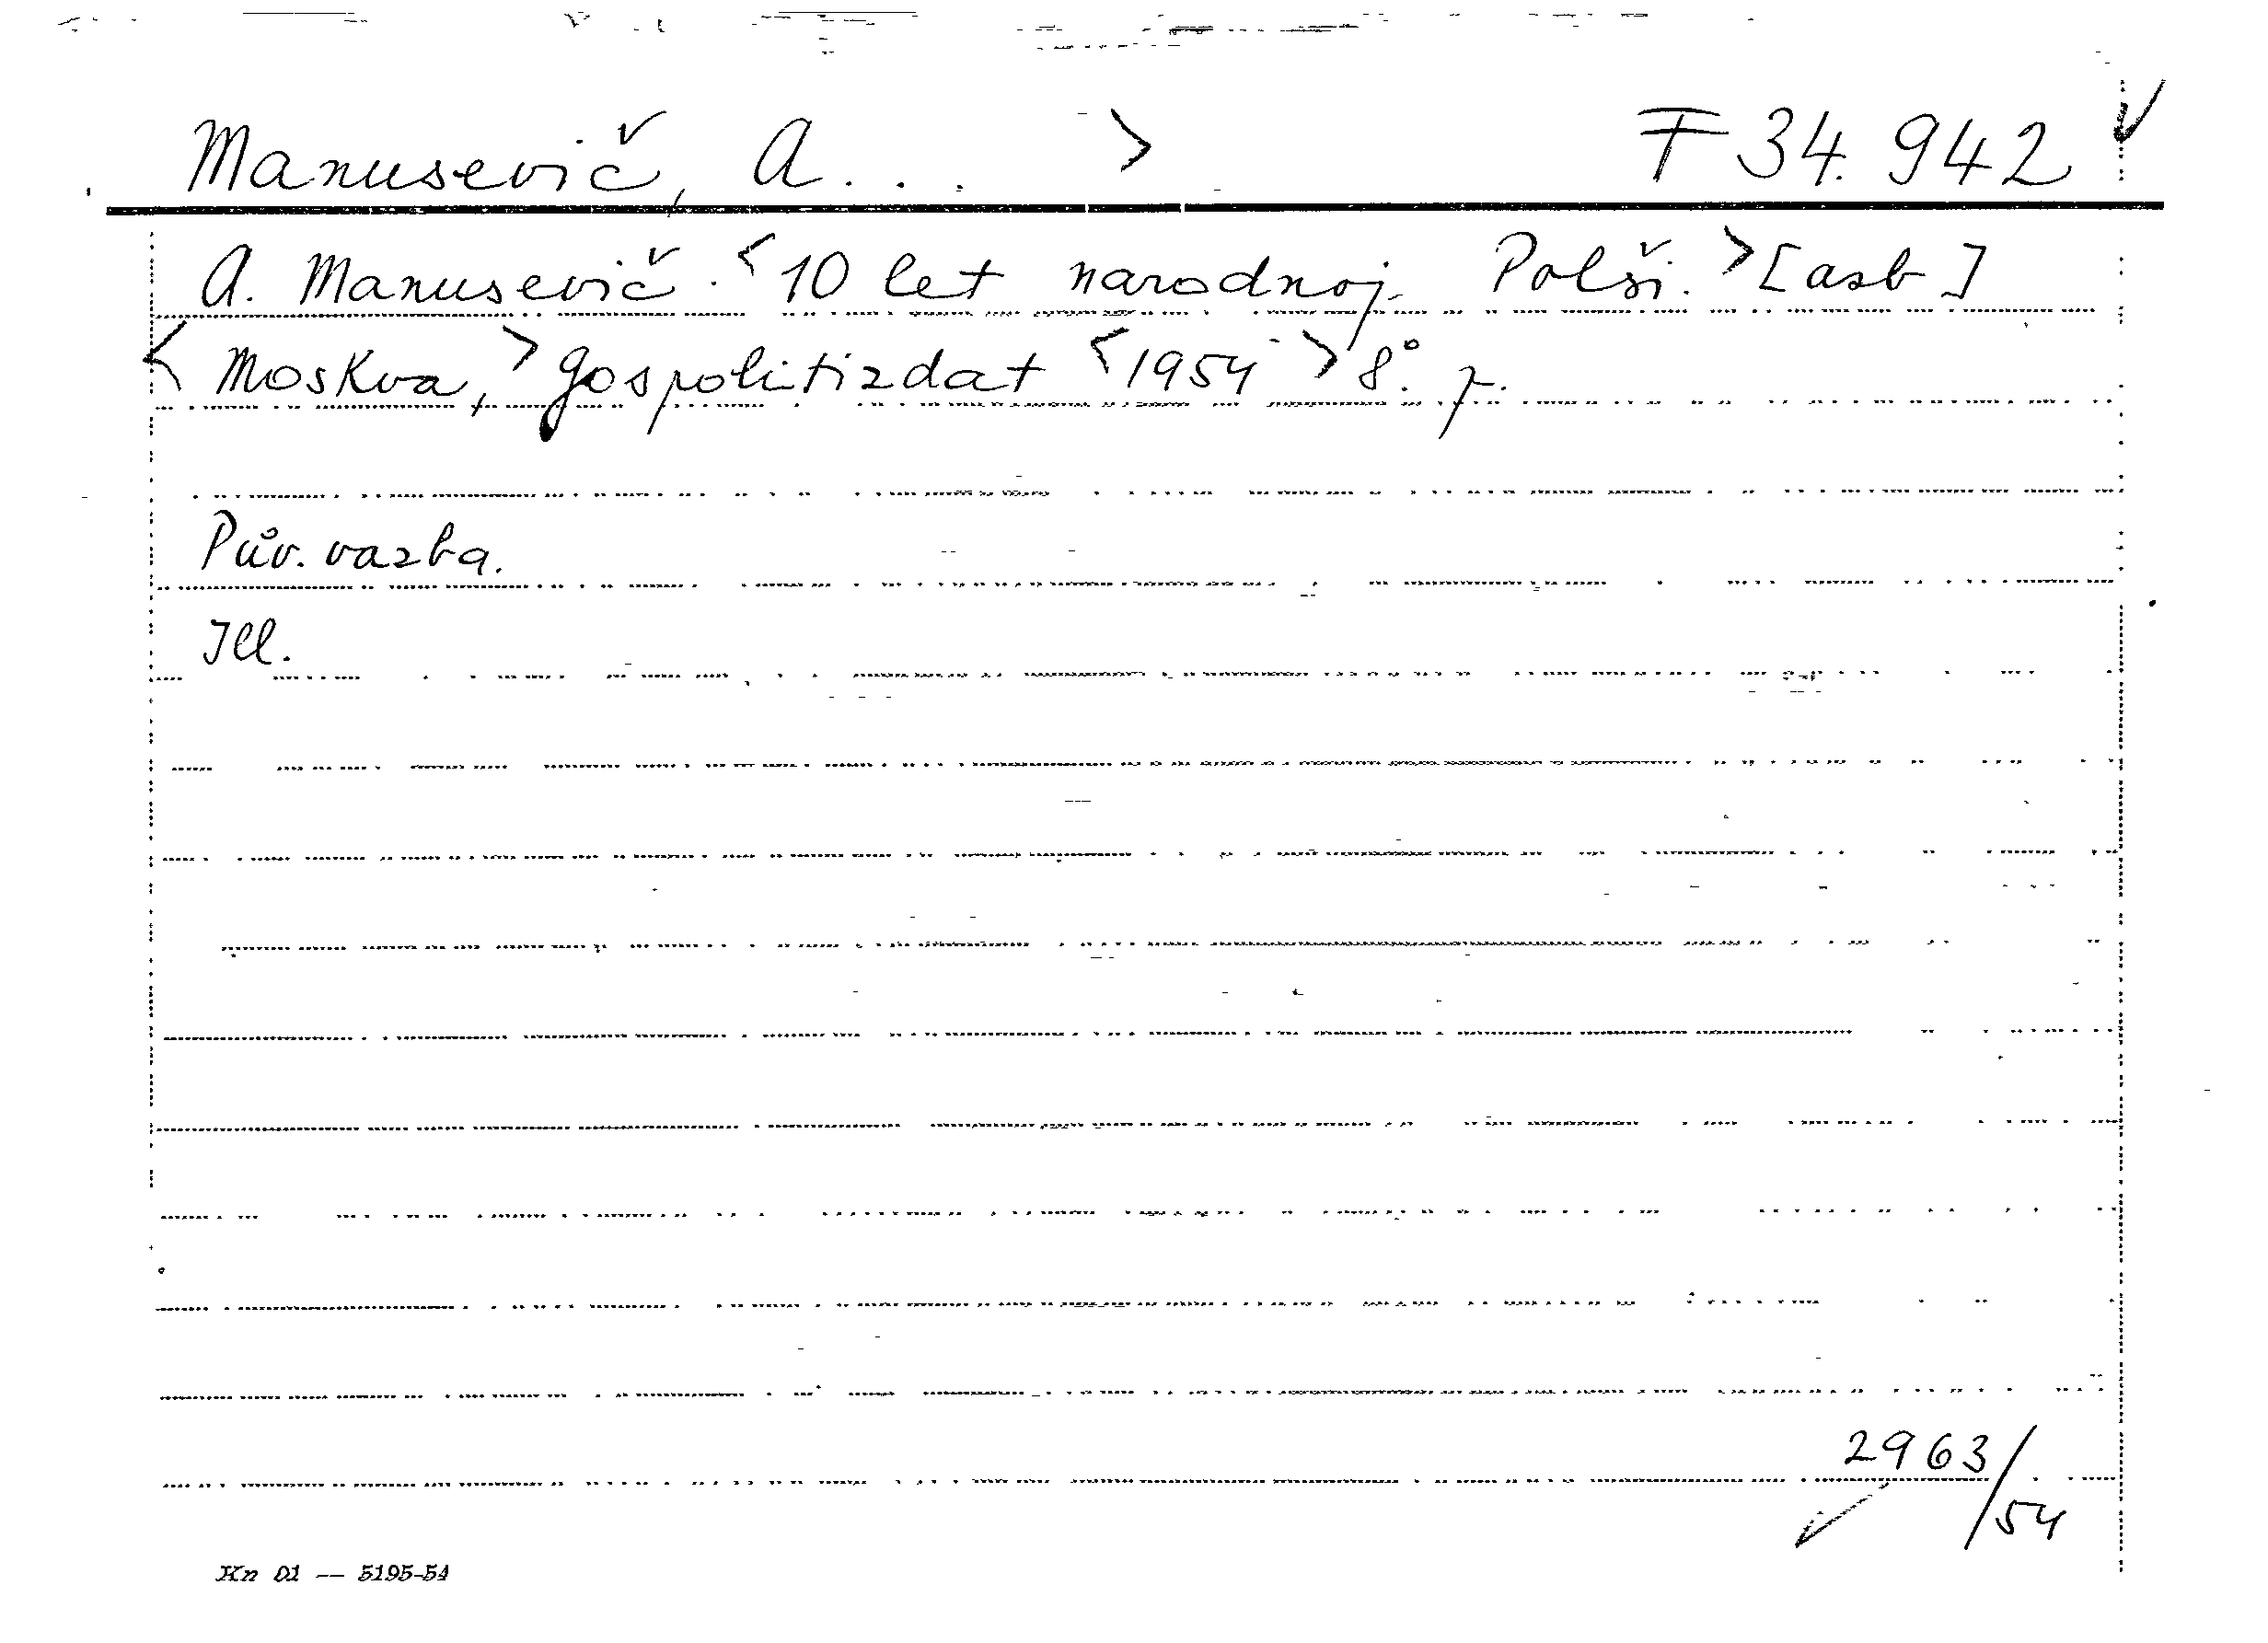 Manusevič, A... > F 34.942 ✓
A. Manusevič. <10 let narodnoj Polši.> [asb]
<Moskva,> Gospolitizdat <1954> 8°. r.
Pův. vazba.
Ill.
2963/54
Kn 01 — 5195-54